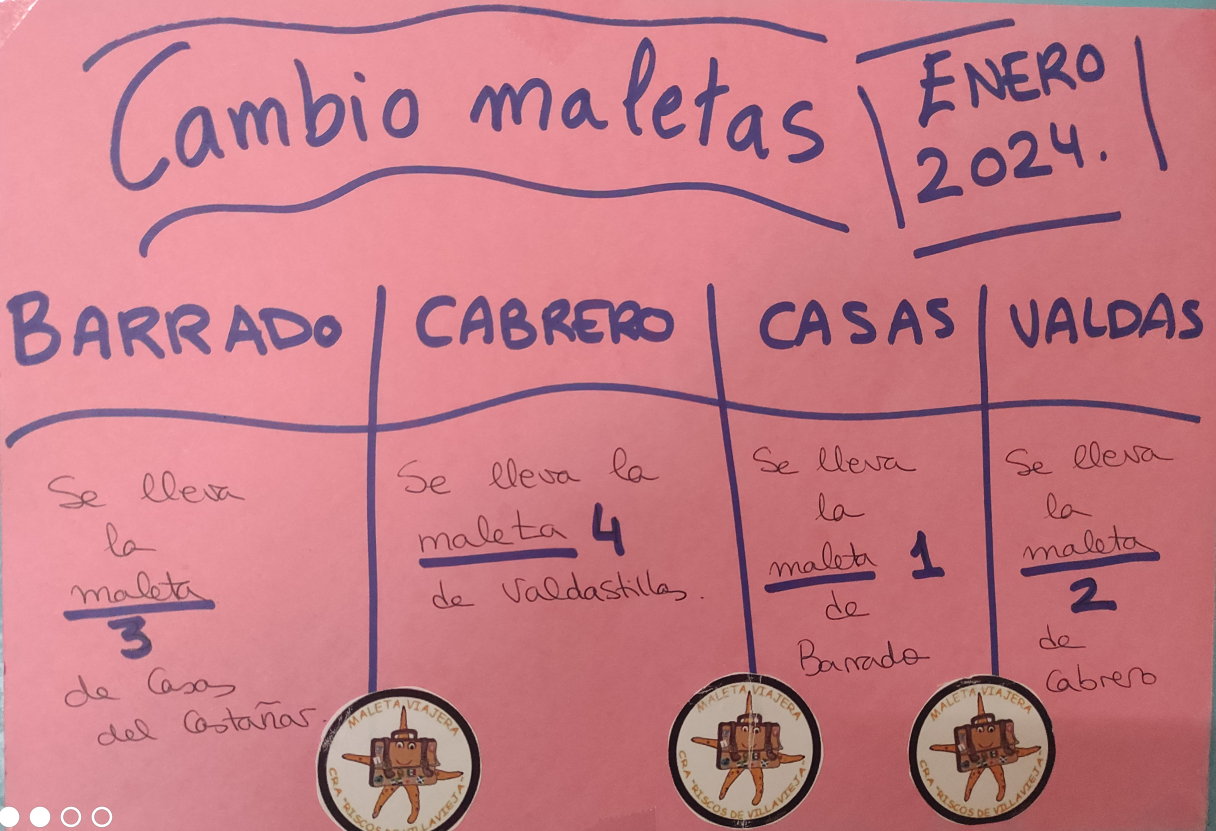 Cambio maletas
ENERO
2024.
BARRADO
CABRERO
CASAS
VALDAS
Se lleva
la
maleta
3
de Casas
del Castañar.
Se lleva la
maleta 4
de Valdastillas.
Se lleva
la
maleta 1
de
Barrado
Se lleva
la
maleta
2
de
Cabrero
MALETA VIAJERA
CRA "RISCOS DE VILLAVIEJA"
MALETA VIAJERA
CRA "RISCOS DE VILLAVIEJA"
MALETA VIAJERA
CRA "RISCOS DE VILLAVIEJA"